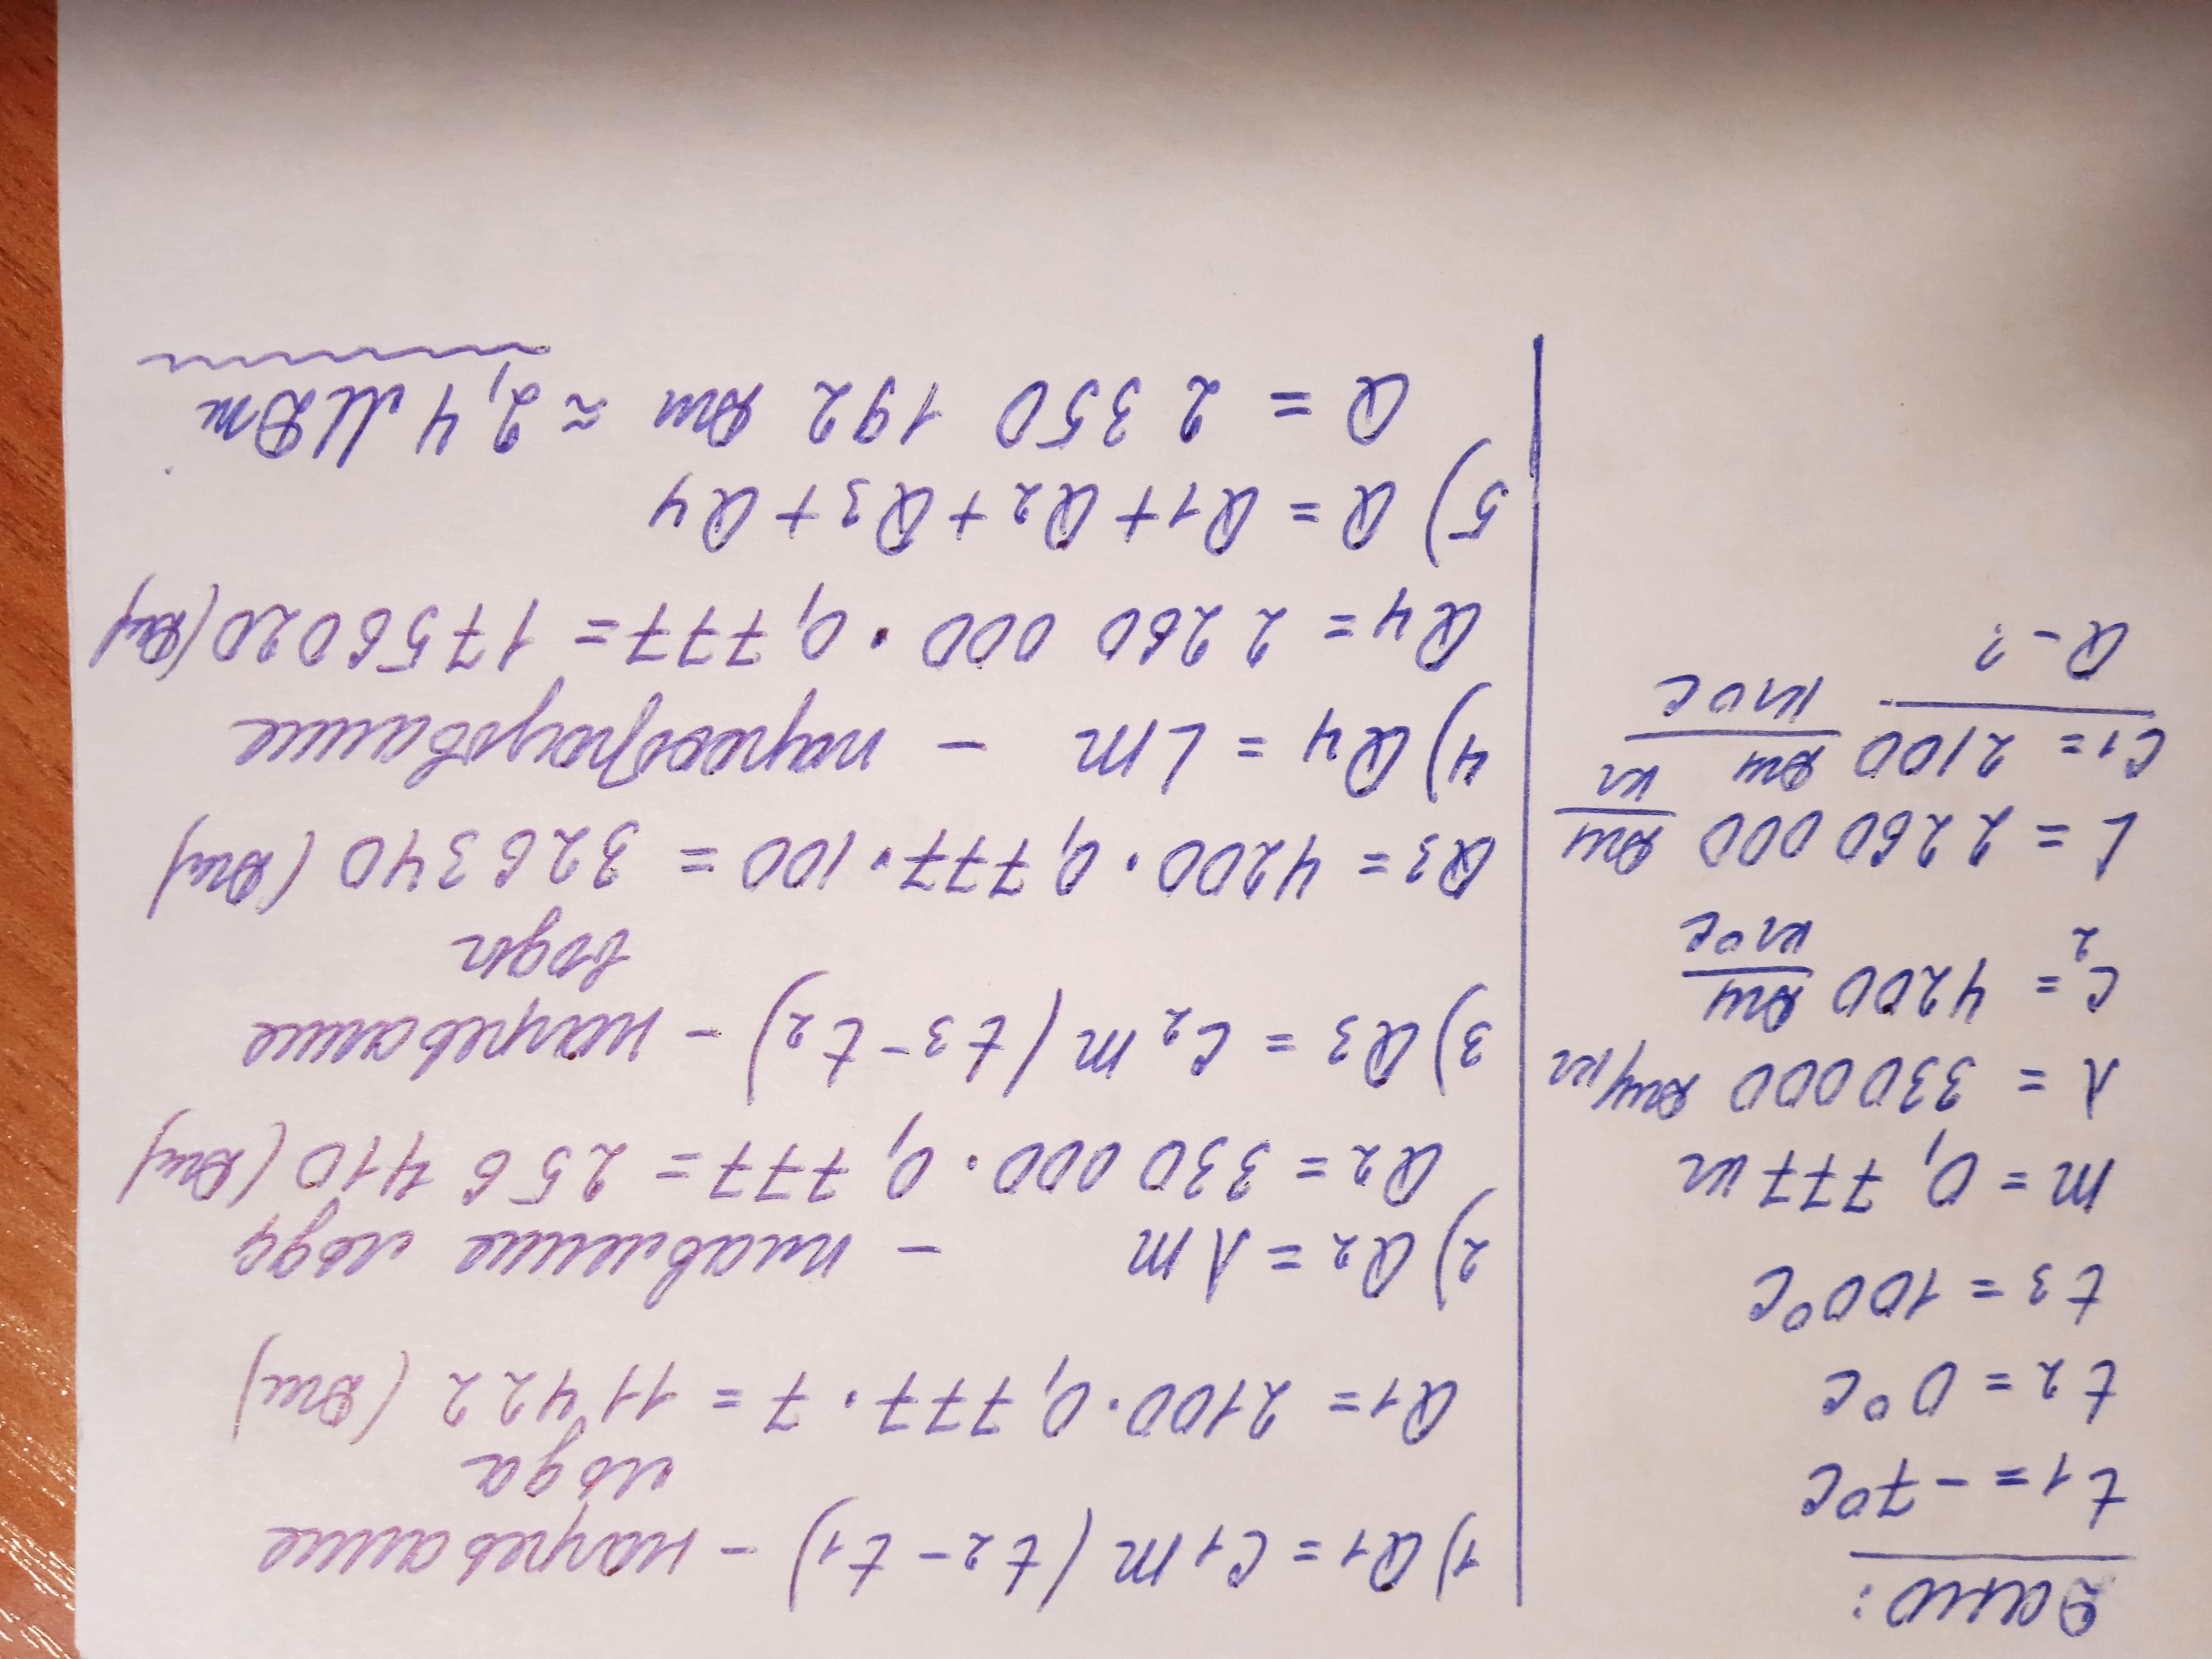 Дано:
t1 = -7°C
t2 = 0°C
t3 = 100°C
m = 0,777 кг
λ = 330 000 Дж/кг
c2 = 4200 Дж/кг°C
L = 2260 000 Дж/кг
c1 = 2100 Дж/кг°C
Q - ?
1) Q1 = c1m (t2 - t1) - нагревание
льда
Q1 = 2100 · 0,777 · 7 = 11 422 (Дж)
2) Q2 = λm - плавление льда
Q2 = 330 000 · 0,777 = 256 410 (Дж)
3) Q3 = c2m (t3 - t2) - нагревание
воды
Q3 = 4200 · 0,777 · 100 = 326 340 (Дж)
4) Q4 = Lm - парообразование
Q4 = 2 260 000 · 0,777 = 1756020 (Дж)
5) Q = Q1 + Q2 + Q3 + Q4
Q = 2 350 192 Дж ≈ 2,4 МДж